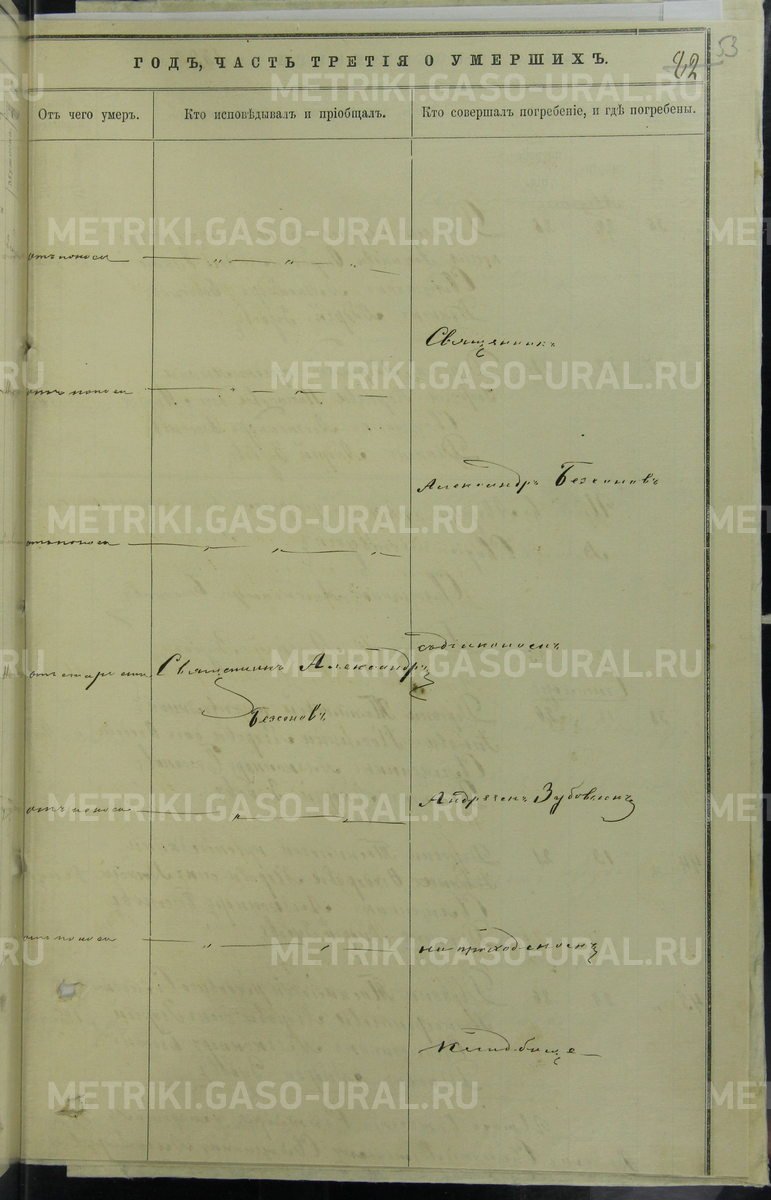 53
82
ГОДЪ, ЧАСТЬ ТРЕТІЯ О УМЕРШИХЪ.
Отъ чего умеръ.
Кто исповѣдывалъ и пріобщалъ.
Кто совершалъ погребеніе, и гдѣ погребены.
METRIKI.GASO-URAL.RU
отъ поноса — „ „ „
Священникъ
отъ поноса — „ „
Александръ Безсоновъ
отъ поноса — „ „ „
съ дьякономъ
отъ старости
Священникъ Александръ
Безсоновъ
Андреемъ Зубовымъ
отъ поноса — „ „
отъ поноса — „ „
на приходскомъ
кладбище